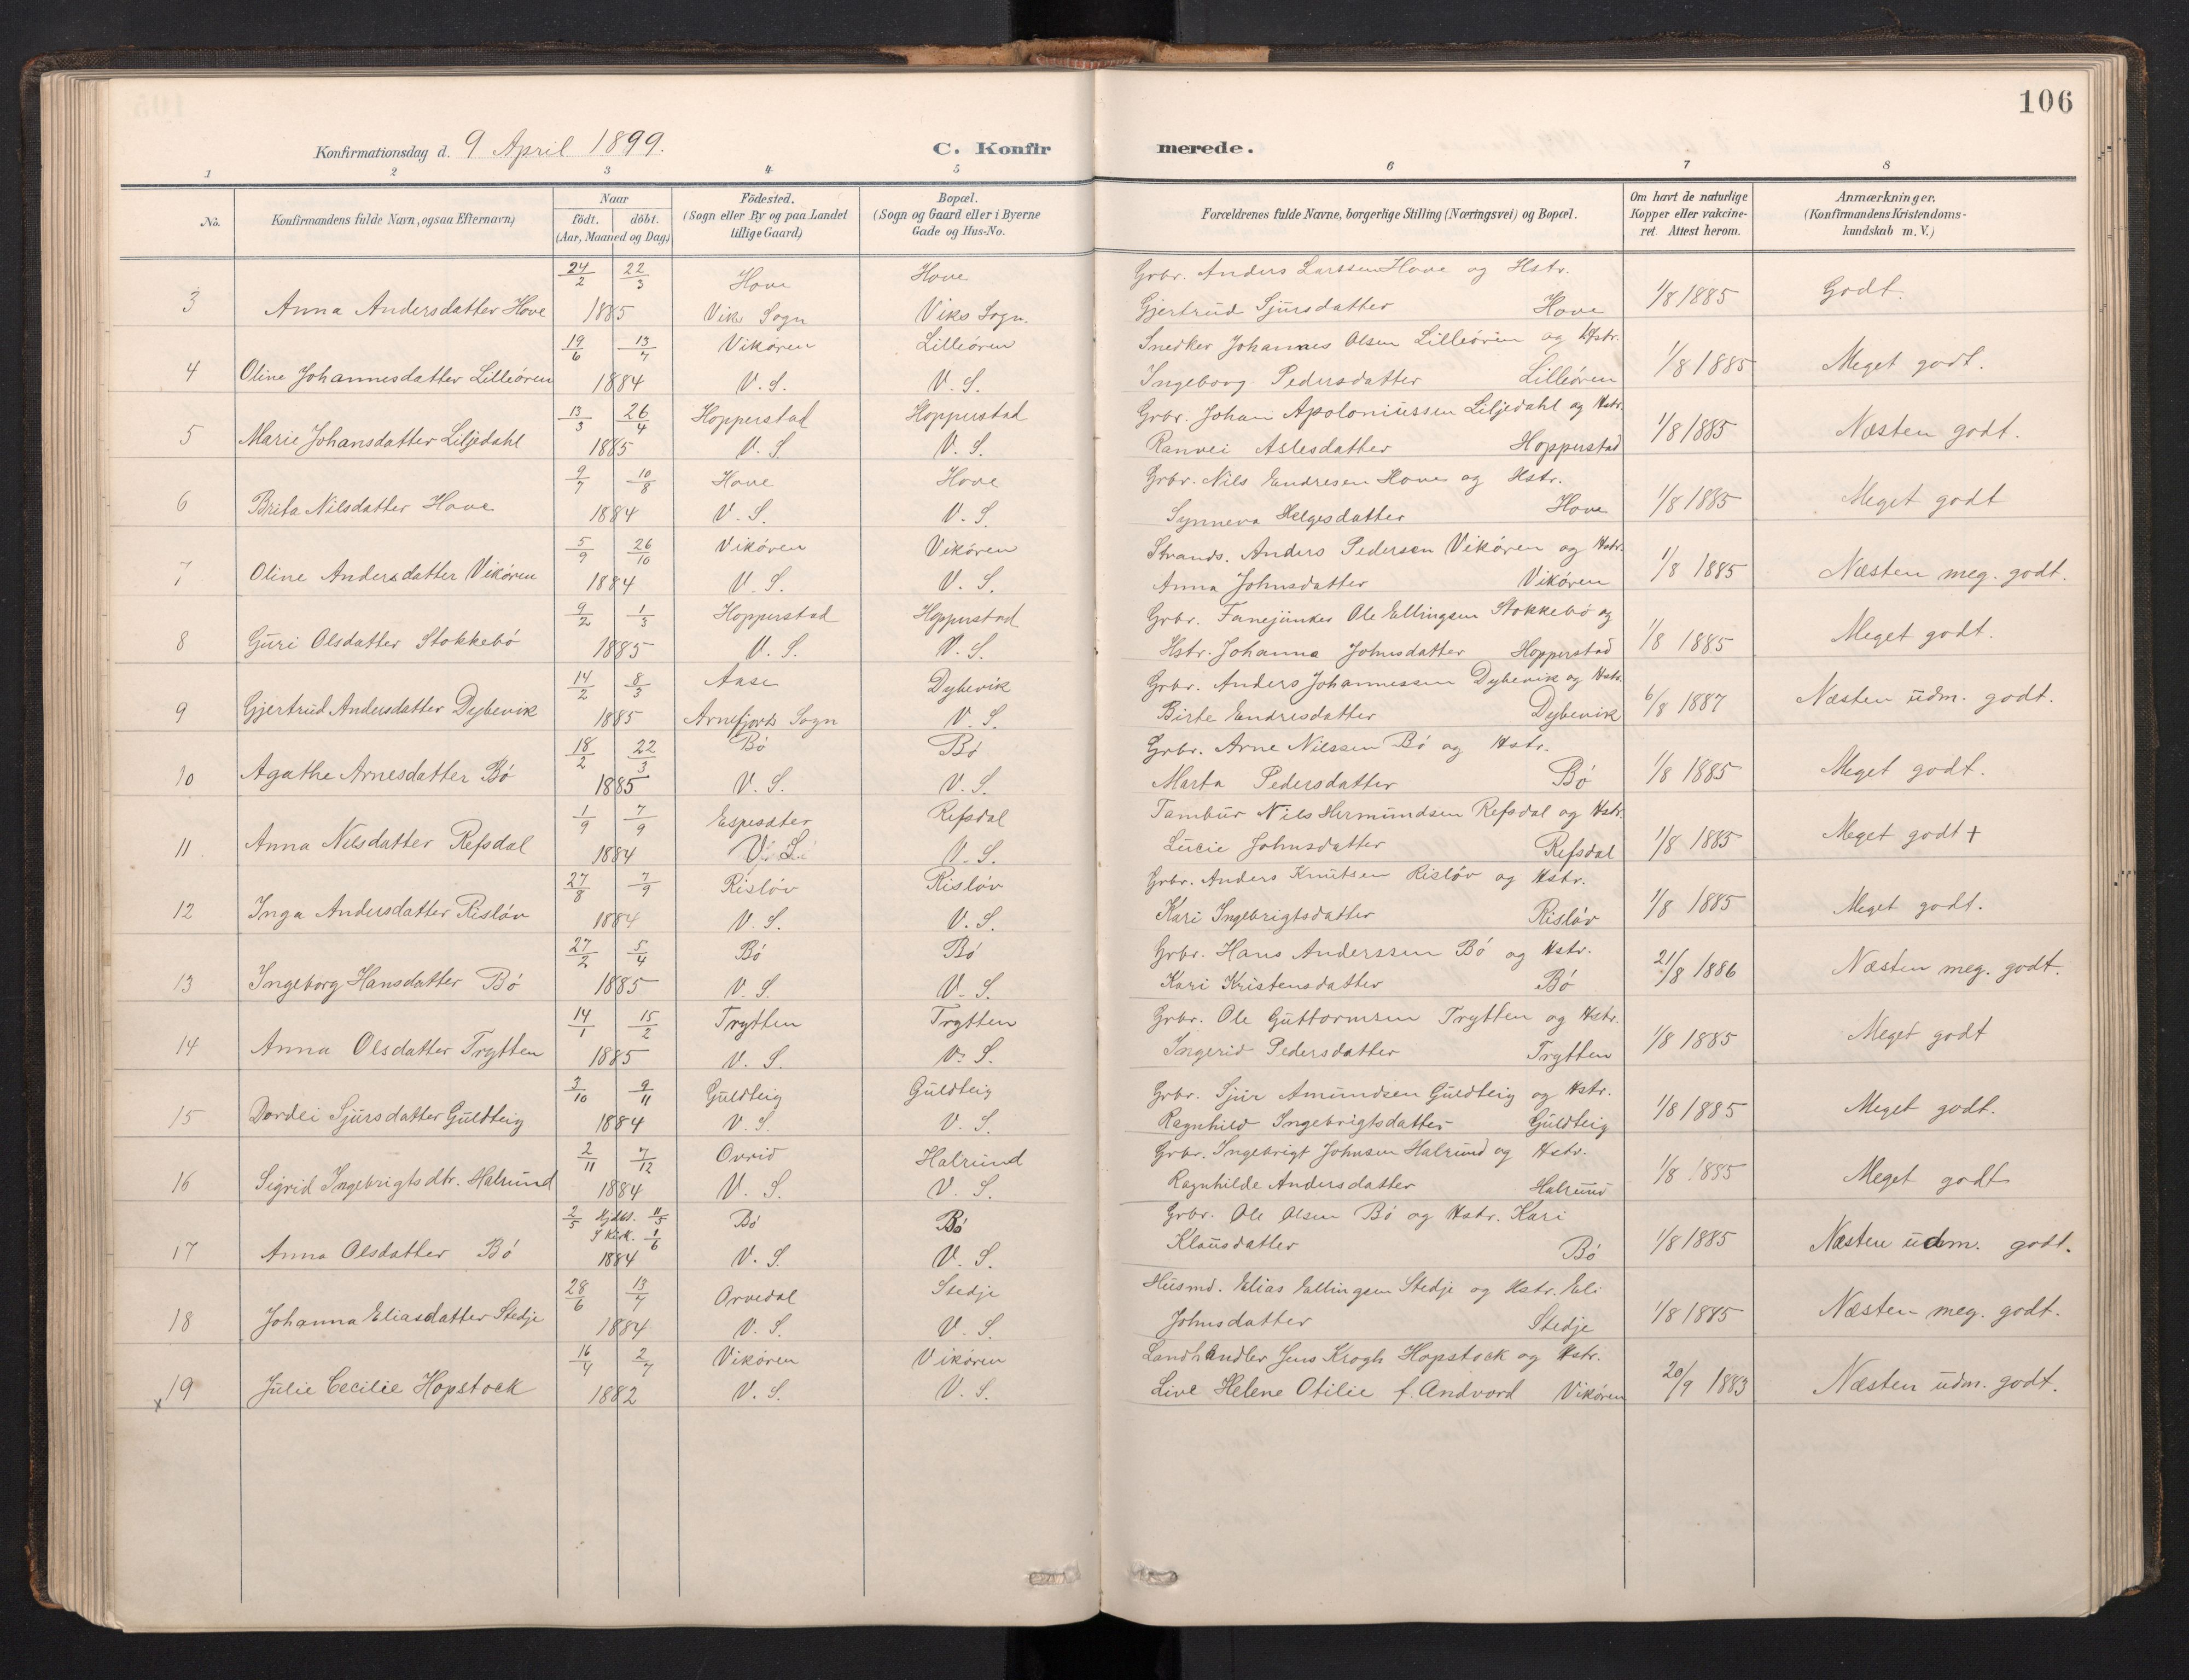 106
Konfirmationsdag d. 9 April 1899. C. Konfirmerede.
1 2 3 4 5 6 7 8
No. Konfirmandens fulde Navn, ogsaa Efternavn) Naar födt. döbt. (Aar, Maaned og Dag) Födested. (Sogn eller By og paa Landet tillige Gaard) Bopæl. (Sogn og Gaard eller i Byerne Gade og Hus-No. Forældrenes fulde Navne, borgerlige Stilling (Næringsvei) og Bopæl. Om havt de naturlige Kopper eller vakcineret. Attest herom. Anmærkninger. (Konfirmandens Kristendomskundskab m. V.)
24/2 22/3 Hove Hove Grbr. Anders Larssen Hove og Hstr.
3 Anna Andersdatter Hove 1885 Vik Sogn Viks Sogn. Gjertrud Sjursdatter Hove 1/8 1885 Godt.
19/6 13/7 Vikøren Lilleören Snedker Johannes Olsen Lilleören og Hstr.
4 Oline Johannesdatter Lilleören 1884 V. S. V. S. Ingeborg Pedersdatter Lilleören 1/8 1885 Meget godt.
13/3 26/4 Hopperstad Hopperstad Grbr. Johan Apoloniussen Liljedahl og Hstr.
5 Marie Johansdatter Liljedahl 1885 V. S. V. S. Ranvei Aslesdatter Hopperstad 1/8 1885 Næsten godt.
9/7 10/8 Hove Hove Grbr. Nils Endresen Hove og Hstr.
6 Brita Nilsdatter Hove 1884 V. S. V. S. Synneva Helgesdatter Hove 1/8 1885 Meget godt
5/9 26/10 Vikören Vikören Strands. Anders Pedersen Vikören og Hstr.
7 Oline Andersdatter Vikören 1884 V. S. V. S. Anna Johnsdatter Vikören 1/8 1885 Næsten meg. godt.
9/2 1/3 Hopperstad Hopperstad Grbr. Fanejunker Ole Ellingsen Stokkebö og
8 Guri Olsdatter Stokkebö 1885 V. S. V. S. Hstr. Johanna Johnsdatter Hopperstad 1/8 1885 Meget godt.
14/2 8/3 Aase Dybevik Grbr. Anders Johannessen Dybevik og Hstr.
9 Gjertrud Andersdatter Dybevik 1885 Arnefjords Sogn V. S. Birte Endresdatter Dybevik 6/8 1887 Næsten udm. godt.
18/2 22/3 Bö Bö Grbr. Arne Nilssen Bö og Hstr.
10 Agathe Arnesdatter Bö 1885 V. S. V. S. Marta Pedersdatter Bö 1/8 1885 Meget godt.
1/9 7/9 Espesæter Refsdal Tambur Nils Hermundsen Refsdal og Hstr.
11 Anna Nilsdatter Refsdal 1884 V. S. V. S. Lucie Johnsdatter Refsdal 1/8 1885 Meget godt +
27/8 7/9 Rislöv Rislöv Grbr. Anders Knutsen Rislöv og Hstr.
12 Inga Andersdatter Rislöv 1884 V. S. V. S. Kari Ingebrigtsdatter Rislöv 1/8 1885 Meget godt.
27/2 5/4 Bö Bö Grbr. Hans Anderssen Bö og Hstr.
13 Ingeborg Hansdatter Bö 1885 V. S. V. S. Kari Kristensdatter Bö 21/8 1886 Næsten meg. godt.
14/1 15/2 Trytten Trytten Grbr. Ole Guttormsen Trytten og Hstr.
14 Anna Olsdatter Trytten 1885 V. S. V. S. Ingerid Pedersdatter Trytten 1/8 1885 Meget godt
3/10 9/11 Guldteig Guldteig Grbr. Sjur Amundsen Guldteig og Hstr.
15 Dordei Sjursdatter Guldteig 1884 V. S. V. S. Ragnhild Ingebrigtsdatter Guldteig 1/8 1885 Meget godt.
2/11 7/12 Ovrid Halrund Grbr. Ingebrigt Johnsen Halrund og Hstr.
16 Sigrid Ingebrigtsdtr. Halrund 1884 V. S. V. S. Ragnhilde Andersdatter Halrund 1/8 1885 Meget godt
2/5 Hjdbt. 11/5 Bö Bö Grbr. Ole Olsen Bö og Hstr. Kari
17 Anna Olsdatter Bö S Kirk. 1/6 1884 V. S. V. S. Klausdatter Bö 1/8 1885 Næsten udm. godt.
28/6 13/7 Orvedal Stedje Husmd. Elias Ellingsen Stedje og Hstr. Eli
18 Johanna Eliasdatter Stedje 1884 V. S. V. S. Johnsdatter Stedje 1/8 1885 Næsten meg. godt.
16/4 2/7 Vikören Vikören Landhandler Jens Krogh Hopstock og Hstr.
x 19 Julie Cecilie Hopstock 1882 V. S. V. S. Live Helene Otilie f. Andvord Vikören 20/9 1883 Næsten udm. godt.